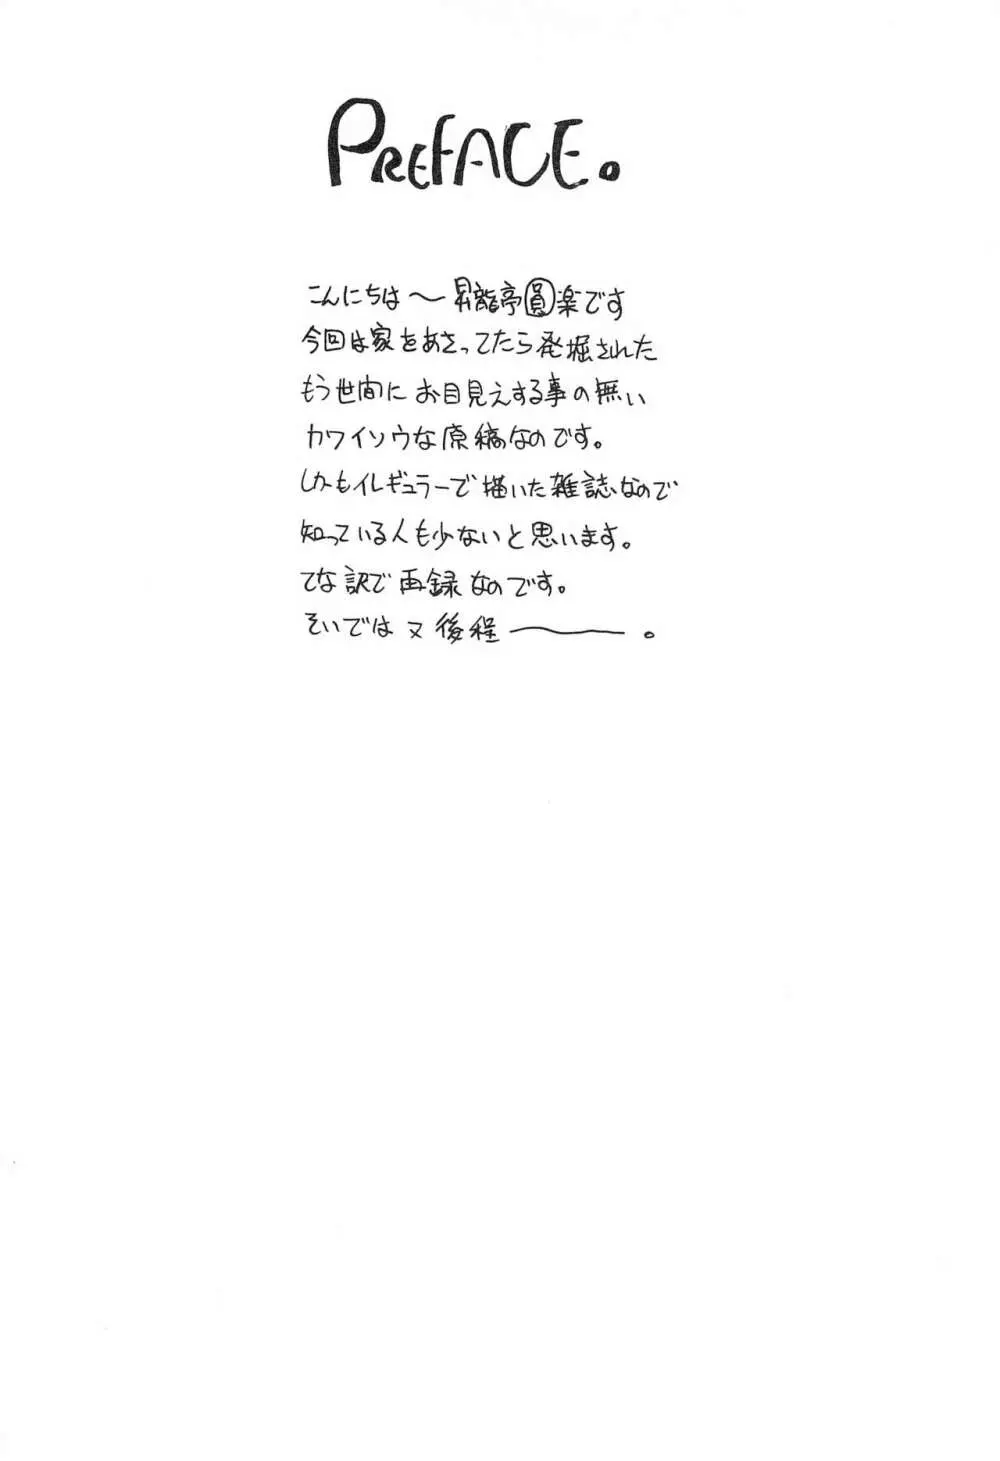 PREFACE。
こんにちは〜昇龍亭圓楽です
今回は家をあさってたら発掘された
もう世間にお目見えする事の無い
カワイソウな原稿なのです。
しかもイレギュラーで描いた雑誌なので
知っている人も少ないと思います。
てな訳で再録なのです。
そいでは又後程――。